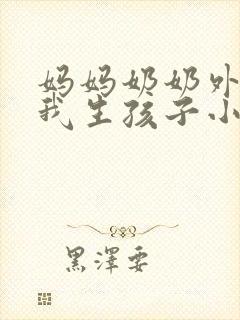 妈妈奶奶外
我生孩子小
黑澤要